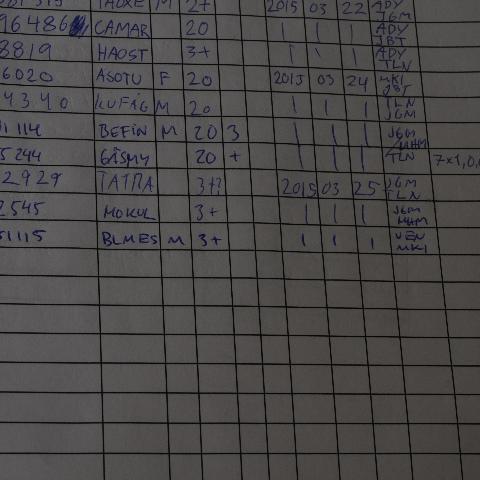 M 2+ 2015 03 22 ADY JGM
96486 CAMAR 20 | | | ADY JBT
8819 HAOST 3+ | | | ADY TLN
6020 ASOTU F 20 2015 03 24 MKI JBT
4340 KUFAG M 20 | | | TLN JGM
1114 BEFIN M 20 3 | | | JGM MHM
5244 GASMY 20 + | | | TLN 7x1,0
2929 TATRA 3+? 2015 03 25 JGM TLN
2545 MOKUL 3+ | | | JGM MHM
51115 BLMES M 3+ | | | VEN MKI